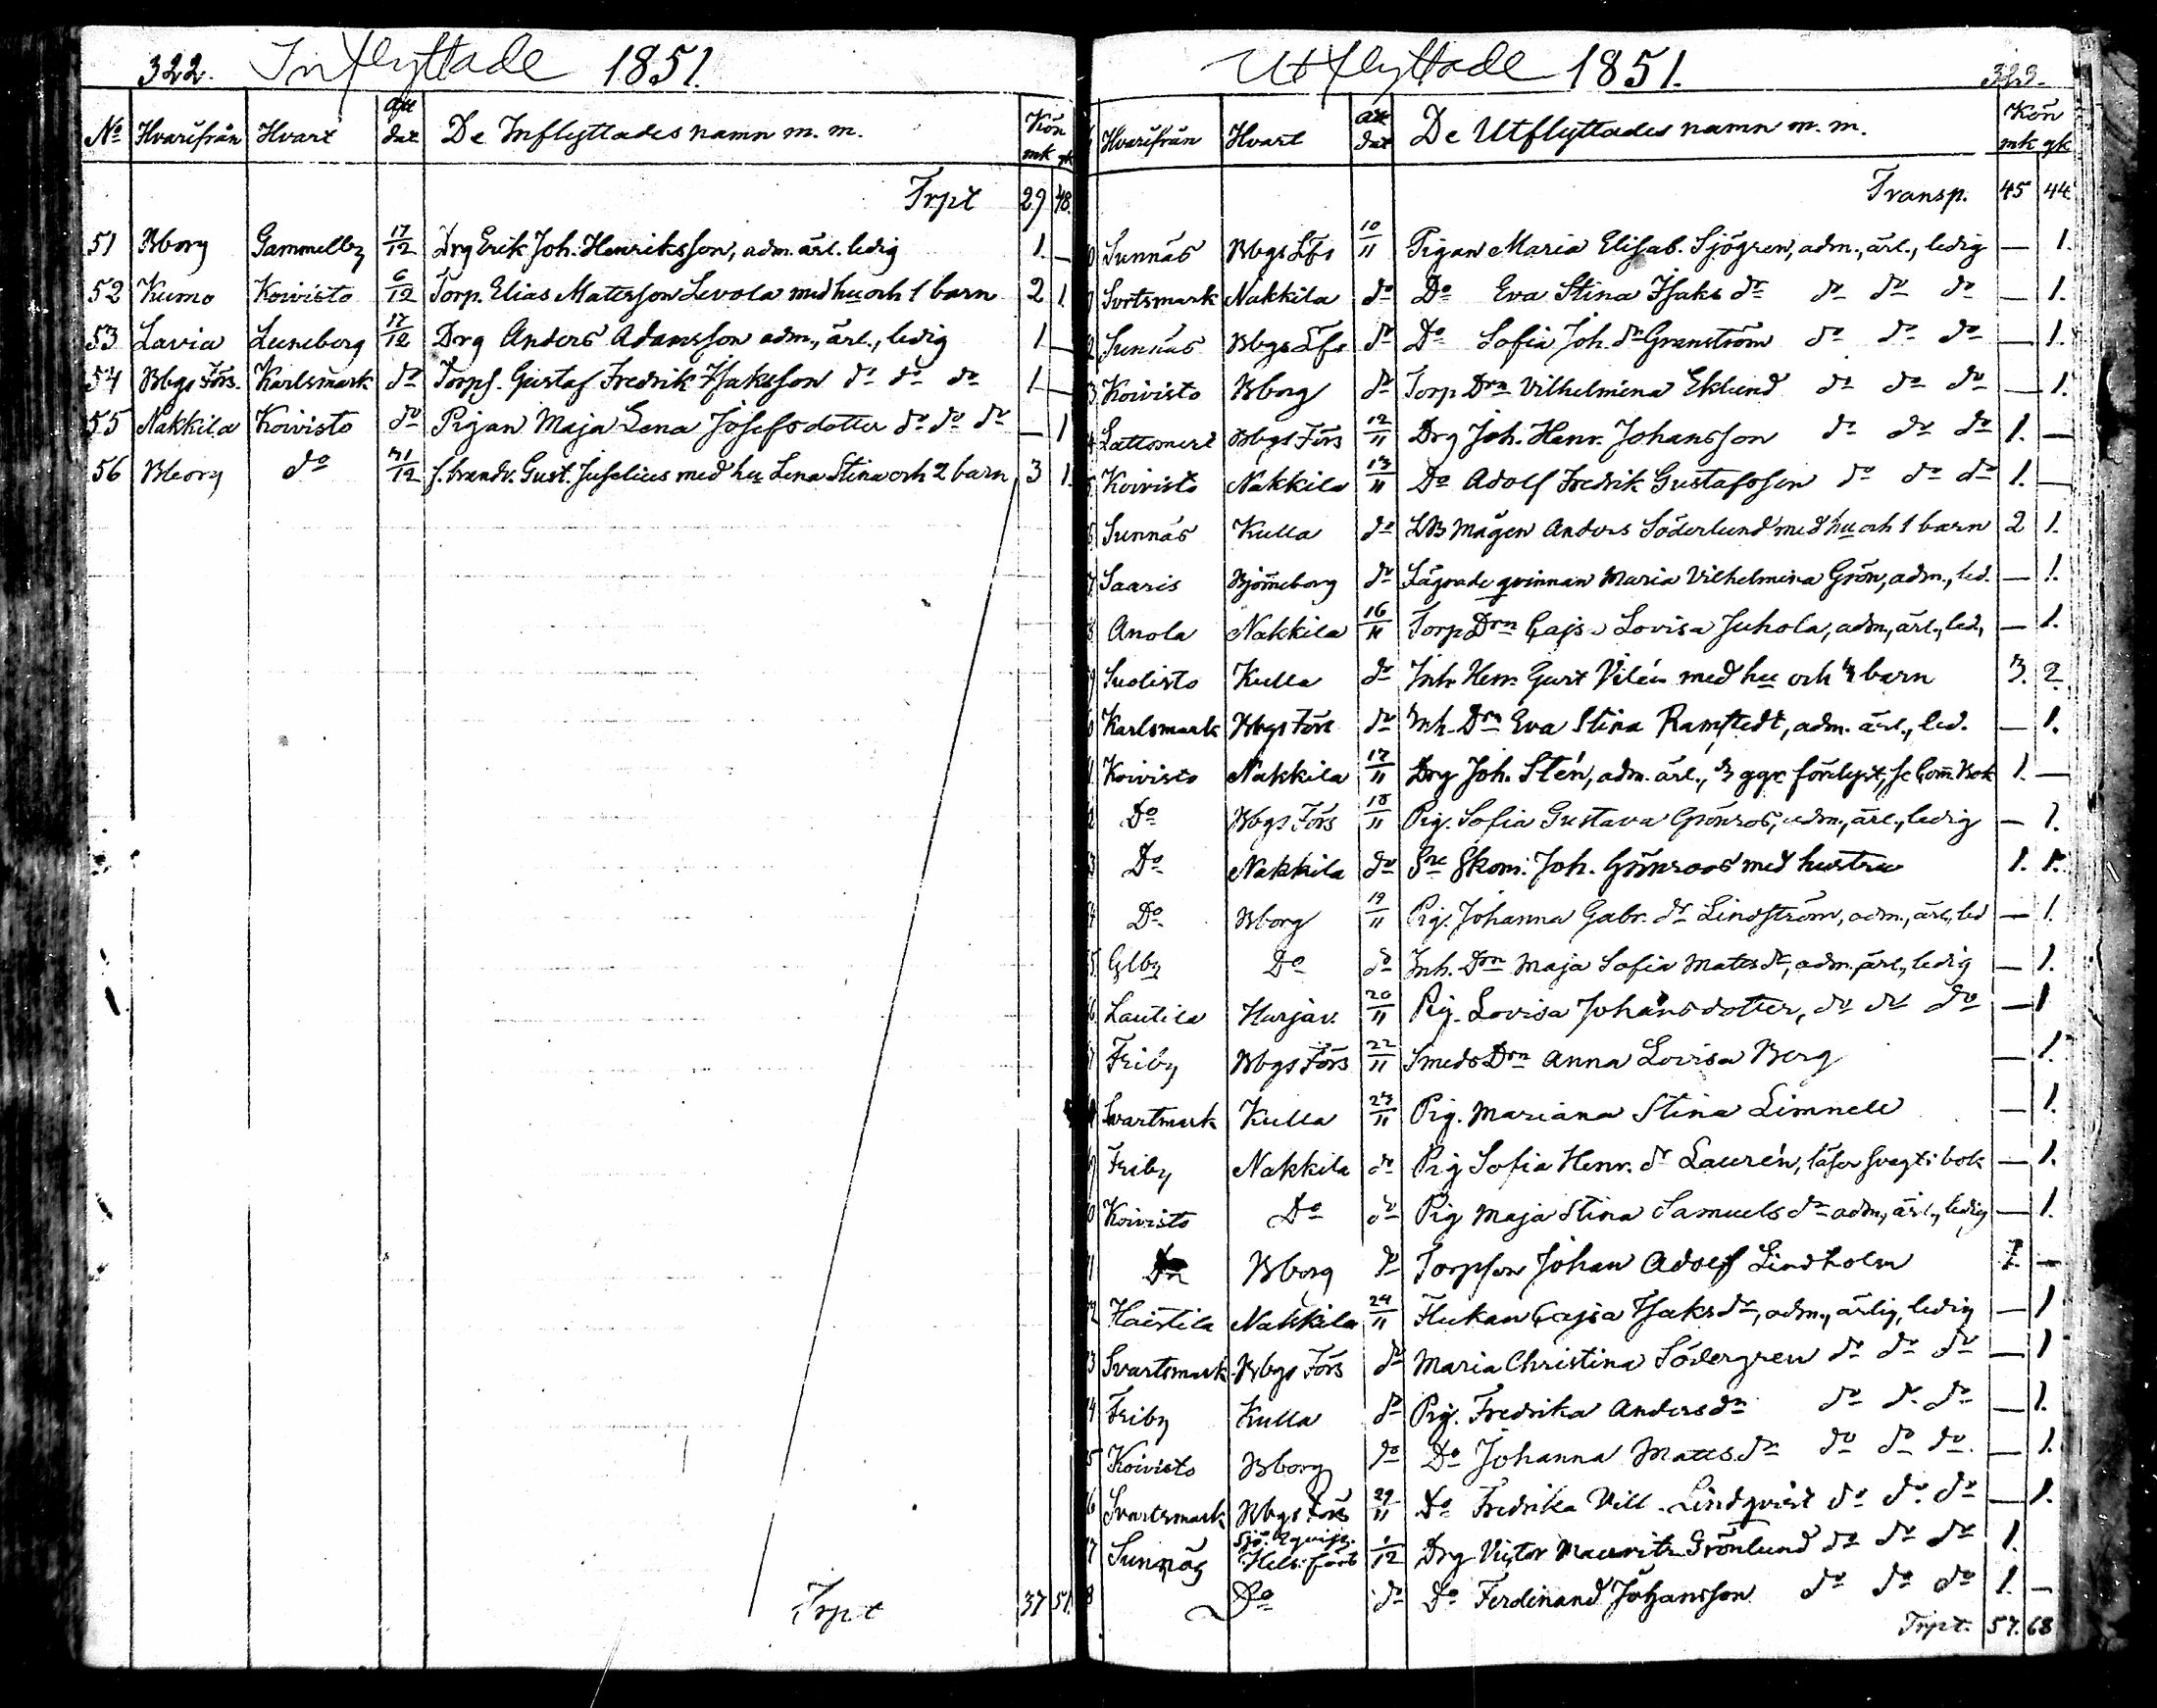 322. Inflyttade 1851.
No Hvarifrån Hvart att dat De Inflyttades namn m. m. Kön mk qk
Trpt 29 48.
51 Bborg Gammelby 17/12 Drg Erik Joh. Henriksson, adm. ärl. ledig 1. —
52 Kumo Koivisto 6/12 Torp. Elias Matsson Levola med hu och 1 barn 2 1.
53 Lavia Leineborg 17/12 Drg Anders Adamsson adm., ärl., ledig 1 —
54 Bbgs Förs. Karlsmark do Torps. Gustaf Fredrik Isaksson do do do 1 —
55 Nakkila Koivisto do Pigan Maja Lena Josefsdotter do do do — 1
56 Bborg do 31/12 f. brandv. Gust. Juselius med hu Lena Stina och 2 barn 3 1.
Trpt 37 51.
Utflyttade 1851. 323.
Hvarifrån Hvart att dat De Utflyttades namn m. m. Kön mk qk
Transp. 45 44
Sunnäs Bbgs Lfs 10/11 Pigan Maria Elisab. Sjögren, adm., ärl., ledig — 1.
Svrtsmark Nakkila do Do Eva Stina Isaks dr do do do — 1.
Sunnäs Bbgs Lfs do Do Sofia Joh. dr Granström do do do — 1.
3 Koivisto Bborg do Torp Drn Vilhelmina Eklund do do do — 1.
4 Lattomeri Bbgs Förs 12/11 Drg Joh. Henr. Johansson do do do 1. —
Koivisto Nakkila 13/11 Do Adolf Fredrik Gustafsson do do do 1. —
Sunnäs Kulla do LB Mågen Anders Söderlund med hu och 1 barn 2 1.
Saaris Björneborg do Lägrade qvinnan Maria Vilhelmina Grön, adm., led. — 1.
Anola Nakkila 16/11 Torp Drn Cajsa Lovisa Juhola, adm., ärl., led., — 1.
Suolisto Kulla do Inh. Henr. Gust Vilén med hu och 3 barn 3. 2.
Karlsmark Bbgs Förs do Inh. Drn Eva Stina Ramstedt, adm. ärl., led. — 1.
Koivisto Nakkila 17/11 Drg Joh. Stén, adm. ärl., 3 ggr förlyst, se Com. Bok 1. —
Do Bbgs Förs 18/11 Pig. Sofia Gustava Grönros, adm., ärl., ledig — 1.
3 Do Nakkila do Skom. Joh. Grönroos med hustru 1. 1.
Do Bborg 19/11 Pig. Johanna Gabr. dr Lindström, adm., ärl., led — 1.
5 Glby Do do Inh. Drn Maja Sofia Matts dr, adm., ärl., ledig — 1.
Lautila Harjav. 20/11 Pig. Lovisa Johansdotter, do do do — 1
Friby Bbgs Förs 22/11 Smeds Drn Anna Lovisa Berg — 1.
Svartmark Kulla 23/11 Pig. Mariana Stina Limnell — 1.
Friby Nakkila do Pig Sofia Henr. dr Laurén, läser svagt i bok — 1.
Koivisto Do do Pig Maja Stina Samuels dr adm., ärl., ledig — 1.
Do Bborg do Torpson Johan Adolf Lindholm 1. —
Haistila Nakkila 24/11 Flickan Cajsa Isaks dr, adm., ärlig, ledig — 1
3 Svartsmark Bbgs Förs do Maria Christina Södergren do do do — 1
4 Friby Kulla do Pig. Fredrika Anders dr do do do — 1.
5 Koivisto Bborg do Do Johanna Matts dr do do do. — 1.
6 Svartsmark Bbgs Förs 29/11 Do Fredrika Vill. Lindqvist do do do — 1.
7 Sunnäs Sjö. Eqvip. Hels.fors 1/12 Drg Victor Mauritz Grönlund do do do 1.
8 Do do Do Ferdinand Johansson do do do 1. —
Trpt. 57. 68